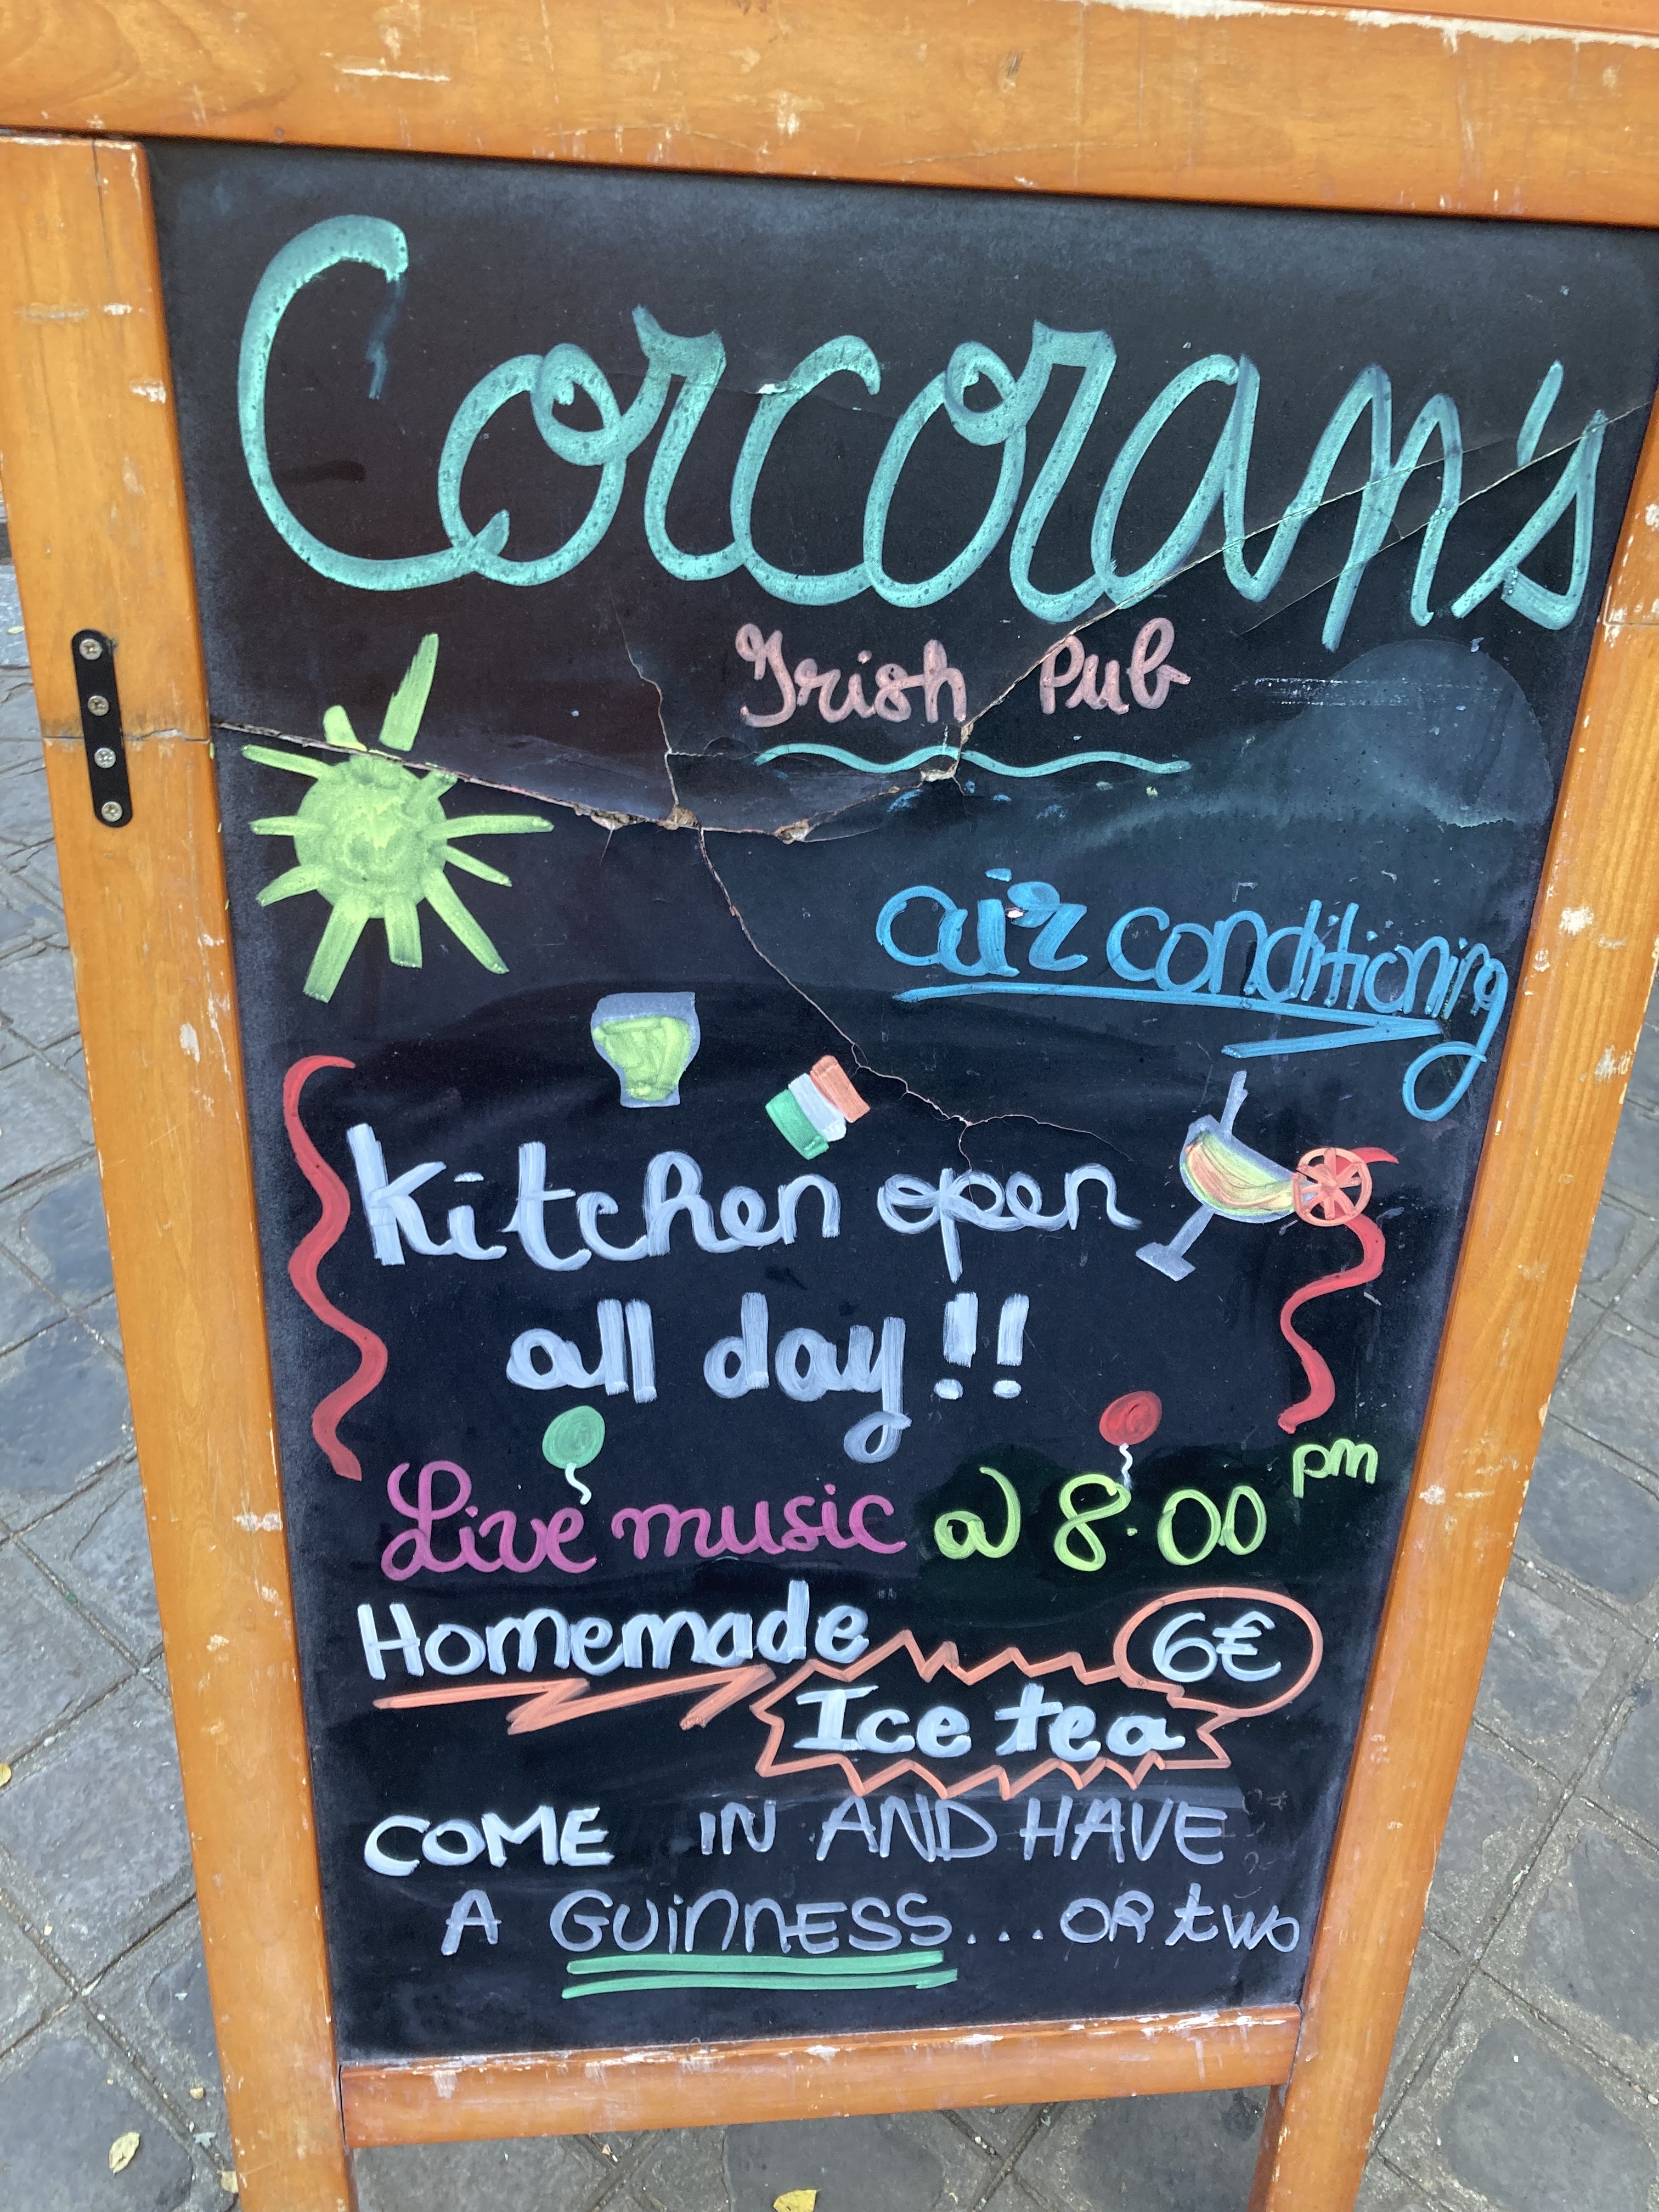 Corcoran's
Irish Pub
air conditioning
Kitchen open
all day!!
Live music @ 8.00 pm
Homemade 6€
Ice tea
COME IN AND HAVE
A GUiNNESS...OR two